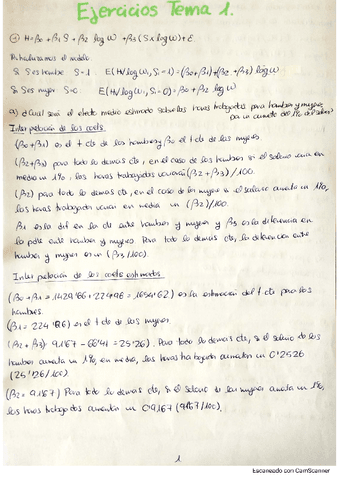 Ejercicios Tema 1.
H = β0 + β1 S + β2 log W + β3 (S x log W) + ε
el modelo
Si S es hombre S=1 E(H/log W, Si = 1) = (β0+β1) + (β2 + β3) log W
Si S es mujer S=0 E(H/log W, Si = 0) = β0 + β2 log W
a) ¿Cuál será el efecto medio estimado sobre las horas trabajadas para hombres y mujeres
un aumento del 1% del salario?
Interpretación de los coefs.
(β0+β1) es el t cte de los hombres y β0 el t cte de las mujeres
(β2+β3) para todo lo demás cte, en el caso de los hombres si el salario varía en
media un 1%, las horas trabajadas variarán (β2+β3)/100.
(β2) para todo lo demás cte, en el caso de las mujeres si el salario aumenta un 1%,
las horas trabajadas varían en media un (β2)/100.
β1 es la dif en la cte entre hombres y mujeres y β3 es la diferencia en
la pdte entre hombres y mujeres. Para todo lo demás cte, la diferencia entre
hombres y mujeres es un (β3/100)
Interpretación de los coefs estimados.
(β0 + β1 = 1429'66 + 224'96 = 1654'62) es la estimación del t cte para los
hombres.
es el t cte de las mujeres
Para todo lo demás cte, si el salario de los
hombres aumenta un 1%, en media, las horas trabajadas aumentan un 0'2526
(25'26/100)
(β2 = 9'167) Para todo lo demás cte, si el salario de las mujeres aumenta un 1%,
las horas trabajadas aumentan un 0'9167 (9'167/100).
1
Escaneado con CamScanner